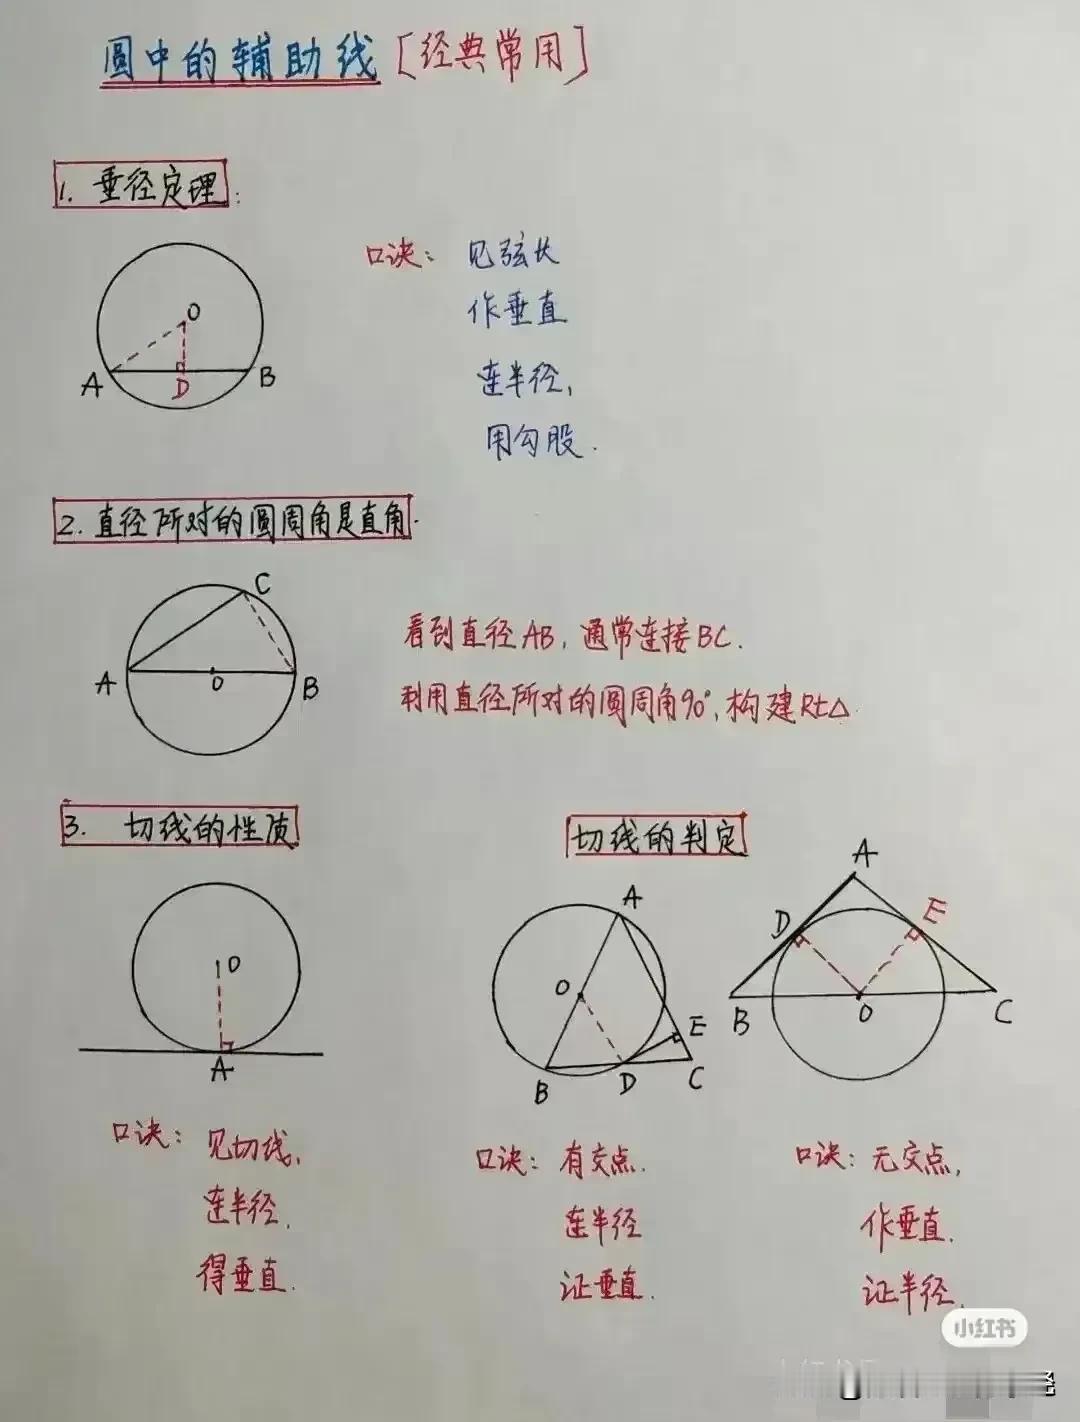 圆中的辅助线[经典常用]
1. 垂径定理:
口诀: 见弦长
作垂直
连半径,
用勾股.
O
A
D
B
2. 直径所对的圆周角是直角.
C
A
O
B
看到直径AB, 通常连接BC.
利用直径所对的圆周角90°, 构建Rt△.
3. 切线的性质
切线的判定
O
A
A
O
E
B
D
C
A
D
E
B
O
C
口诀: 见切线,
连半径,
得垂直.
口诀: 有交点.
连半径
证垂直.
口诀: 无交点,
作垂直.
证半径.
小红书